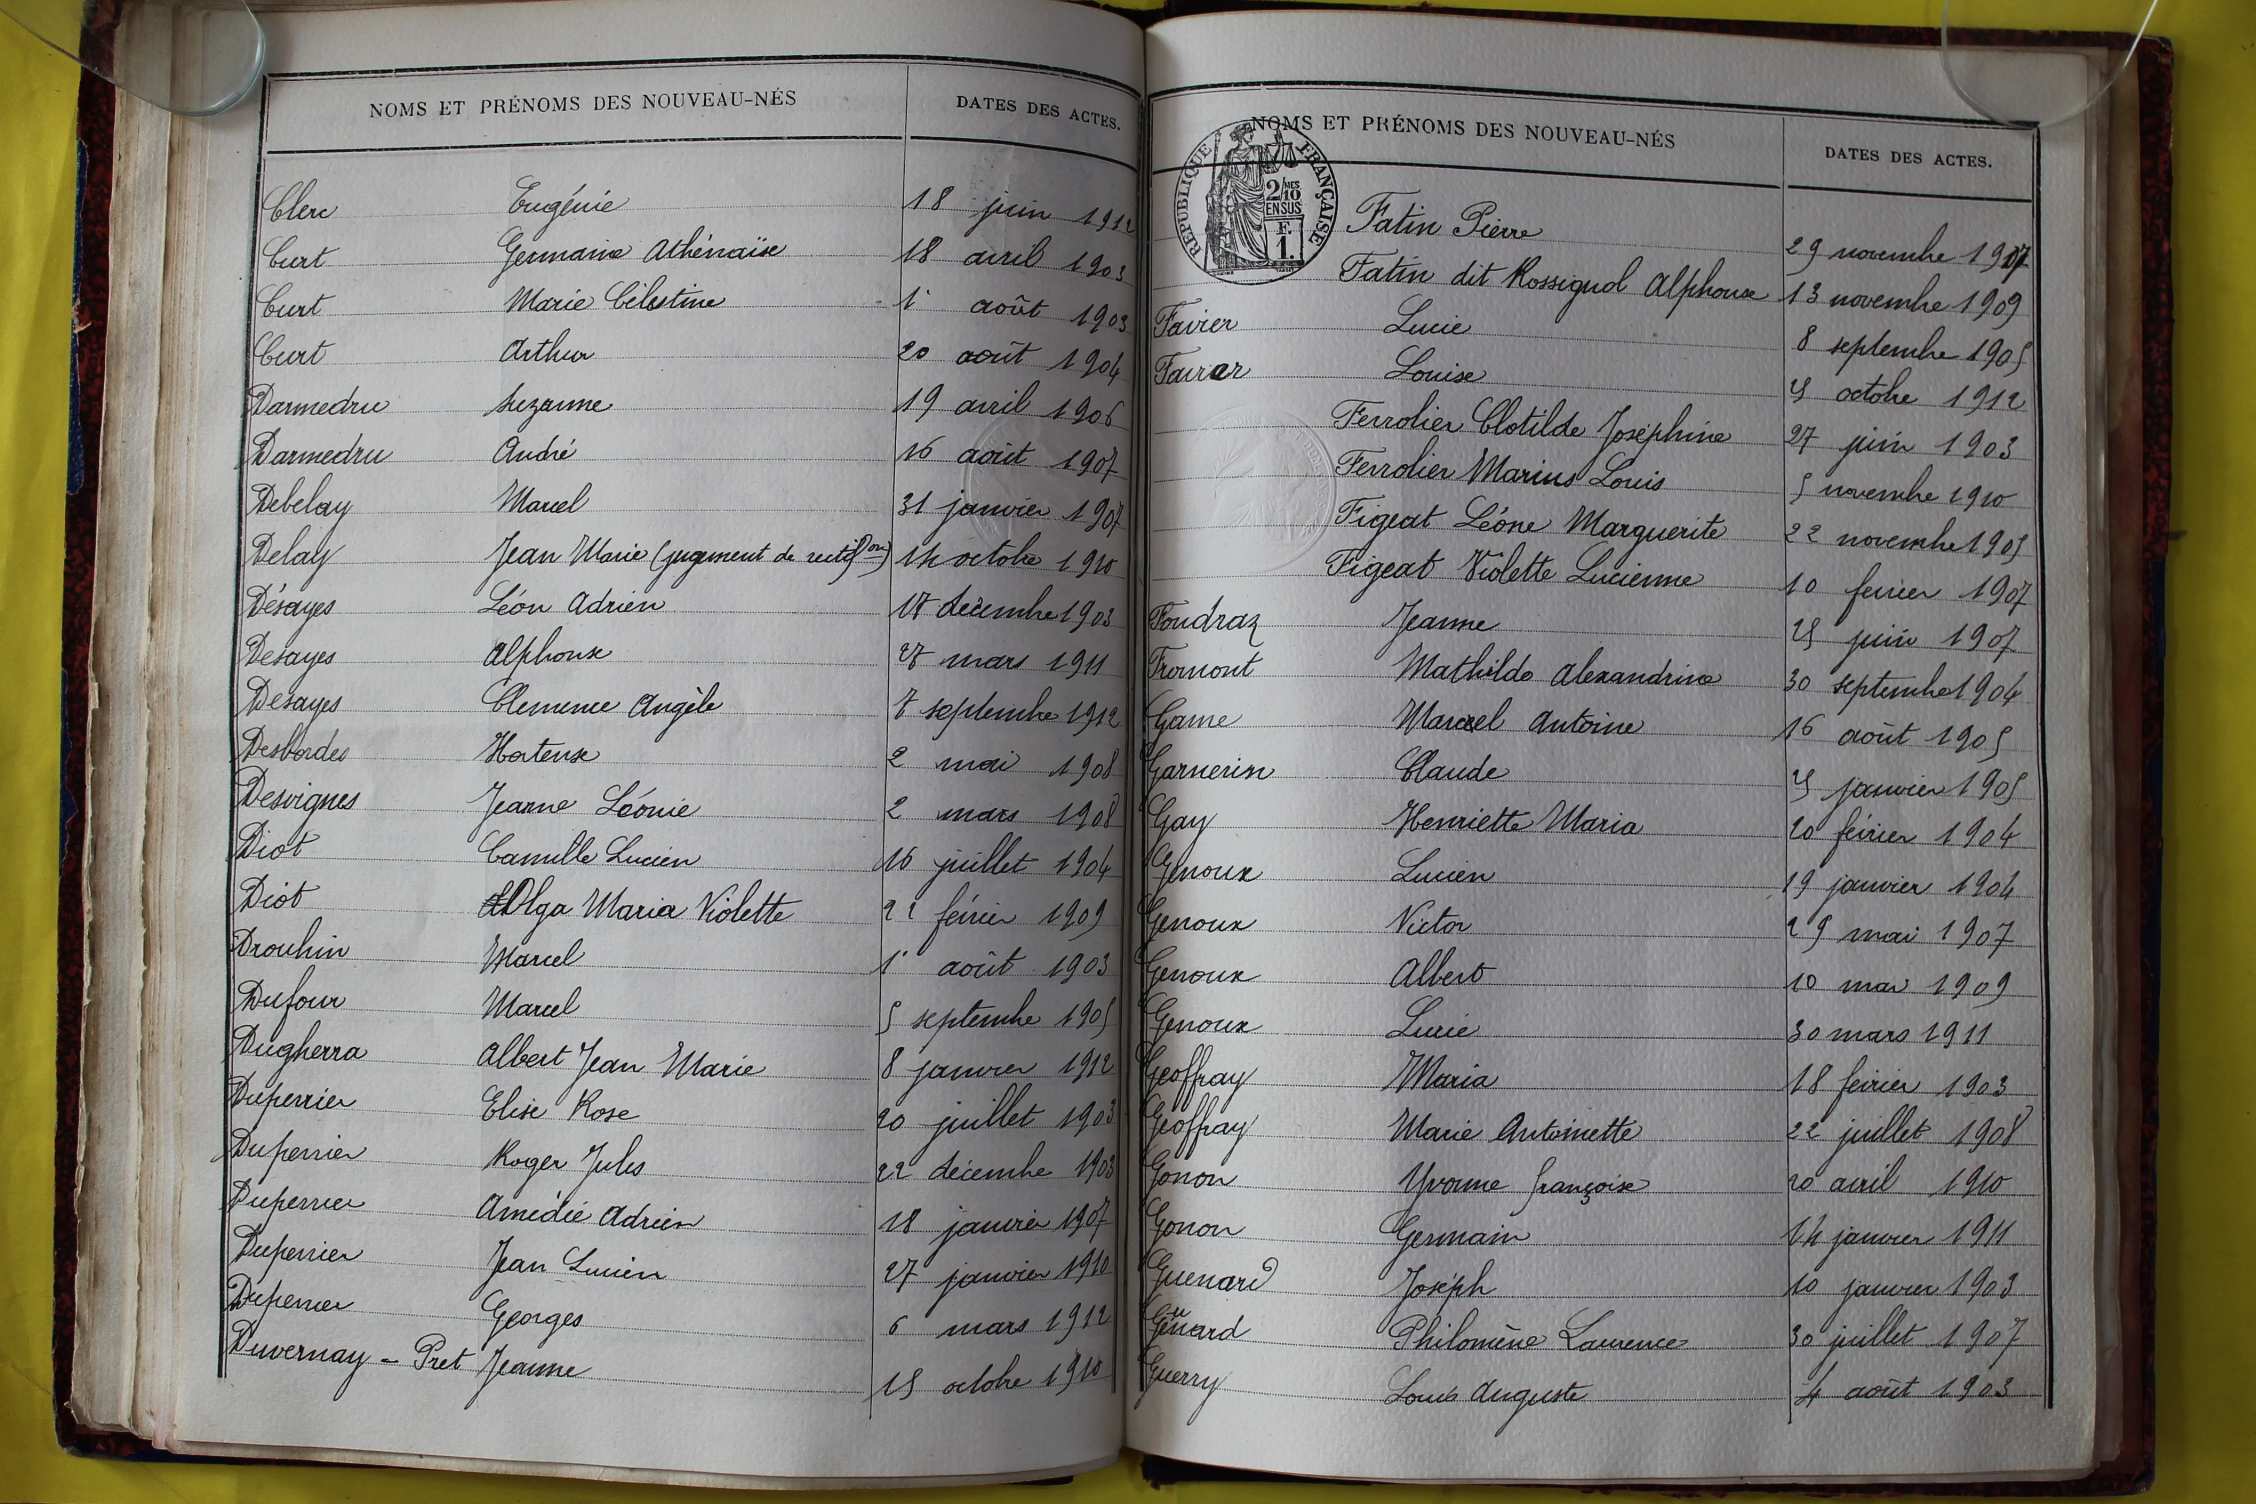 NOMS ET PRÉNOMS DES NOUVEAU-NÉS DATES DES ACTES.
Clerc Eugénie 18 juin 1912
Curt Germaine Athénaïse 18 avril 1903
Curt Marie Célestine 1er août 1903
Curt Arthur 20 août 1904
Darmedru Suzanne 19 avril 1906
Darmedru André 16 août 1907
Debelay Marcel 31 janvier 1907
Delay Jean Marie (jugement de rectifon) 14 octobre 1910
Désayes Léon Adrien 17 décembre 1903
Desayes Alphonse 27 mars 1911
Desayes Clemence Angèle 7 septembre 1912
Desbordes Hortense 2 mai 1908
Desvignes Jeanne Léonie 2 mars 1908
Diot Camille Lucien 16 juillet 1904
Diot Olga Maria Violette 22 février 1909
Drouhin Marcel 1er août 1903
Dufour Marcel 5 septembre 1905
Dugherra Albert Jean Marie 8 janvier 1912
Duperrier Elise Rose 20 juillet 1903
Duperrier Roger Jules 22 décembre 1903
Duperrier Amédée Adrien 18 janvier 1907
Duperrier Jean Lucien 27 janvier 1910
Duperrier Georges 6 mars 1912
Duvernay - Pret Jeanne 15 octobre 1910
NOMS ET PRÉNOMS DES NOUVEAU-NÉS DATES DES ACTES.
RÉPUBLIQUE FRANÇAISE
2/10 MES
EN SUS
F.
1.
Fatin Pierre 29 novembre 1907
Fatin dit Rossignol Alphonse 13 novembre 1909
Favier Lucie 8 septembre 1905
Favier Louise 5 octobre 1912
Ferrolier Clotilde Joséphine 27 juin 1903
Ferrolier Marius Louis 5 novembre 1910
Figeat Léone Marguerite 22 novembre 1905
Figeat Violette Lucienne 10 fevrier 1907
Foudraz Jeanne 25 juin 1907
Fromont Mathilde Alexandrine 30 septembre 1904
Game Marcel Antoine 16 août 1905
Garnerin Claude 5 janvier 1905
Gay Henriette Maria 20 février 1904
Genoux Lucien 19 janvier 1904
Genoux Victor 29 mai 1907
Genoux Albert 10 mai 1909
Genoux Lucie 30 mars 1911
Geoffray Maria 18 février 1903
Geoffray Marie Antoinette 22 juillet 1908
Gonon Yvonne Françoise 20 avril 1910
Gonon Germain 14 janvier 1911
Guenard Joséph 10 janvier 1903
Guénard Philomène Laurence 30 juillet 1907
Guerry Louis Auguste 4 août 1903